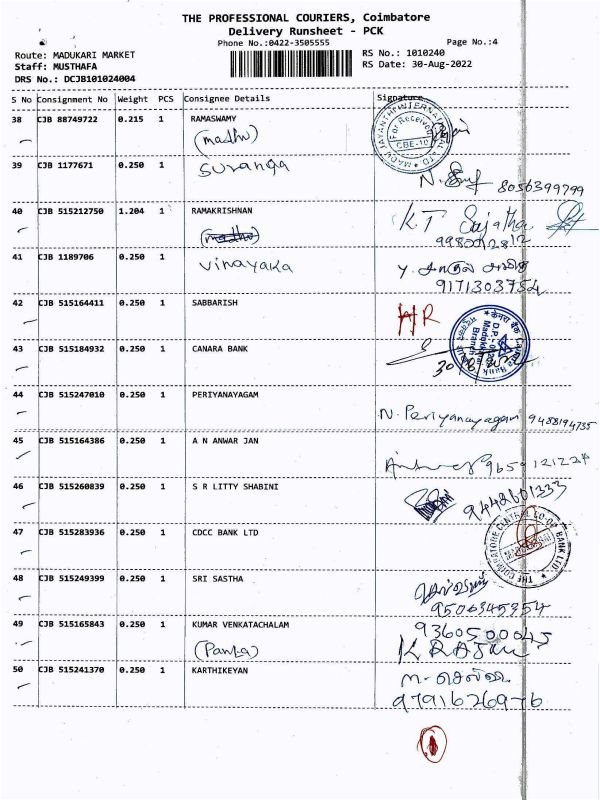 THE PROFESSIONAL COURIERS, Coimbatore
Delivery Runsheet - PCK
Phone No.:0422-3505555
Page No.:4
Route: MADUKARI MARKET
RS No.: 1010240
Staff: MUSTHAFA
RS Date: 30-Aug-2022
DRS No.: DCJB101024004
S No Consignment No Weight PCS Consignee Details Signature
38 CJB 88749722 0.215 1 RAMASWAMY
(madhu)
For Receiver
CBE-10
39 CJB 1177671 0.250 1 Suranga
8056399799
40 CJB 515212750 1.204 1 RAMAKRISHNAN
K.T Sujatha
(madhu)
41 CJB 1189706 0.250 1 vinayaka
9171303754
42 CJB 515164411 0.250 1 SABBARISH
HR
43 CJB 515184932 0.250 1 CANARA BANK
44 CJB 515247010 0.250 1 PERIYANAYAGAM
N. Periyanayagam 9488194735
45 CJB 515164386 0.250 1 A N ANWAR JAN
46 CJB 515260839 0.250 1 S R LITTY SHABINI
9442601333
47 CJB 515283936 0.250 1 CDCC BANK LTD
THE COIMBATORE CENTRAL CO-OP BANK LTD
48 CJB 515249399 0.250 1 SRI SASTHA
9506345354
49 CJB 515165843 0.250 1 KUMAR VENKATACHALAM
9360500045
K RAJAN
50 CJB 515241370 0.250 1 KARTHIKEYAN
9791626976